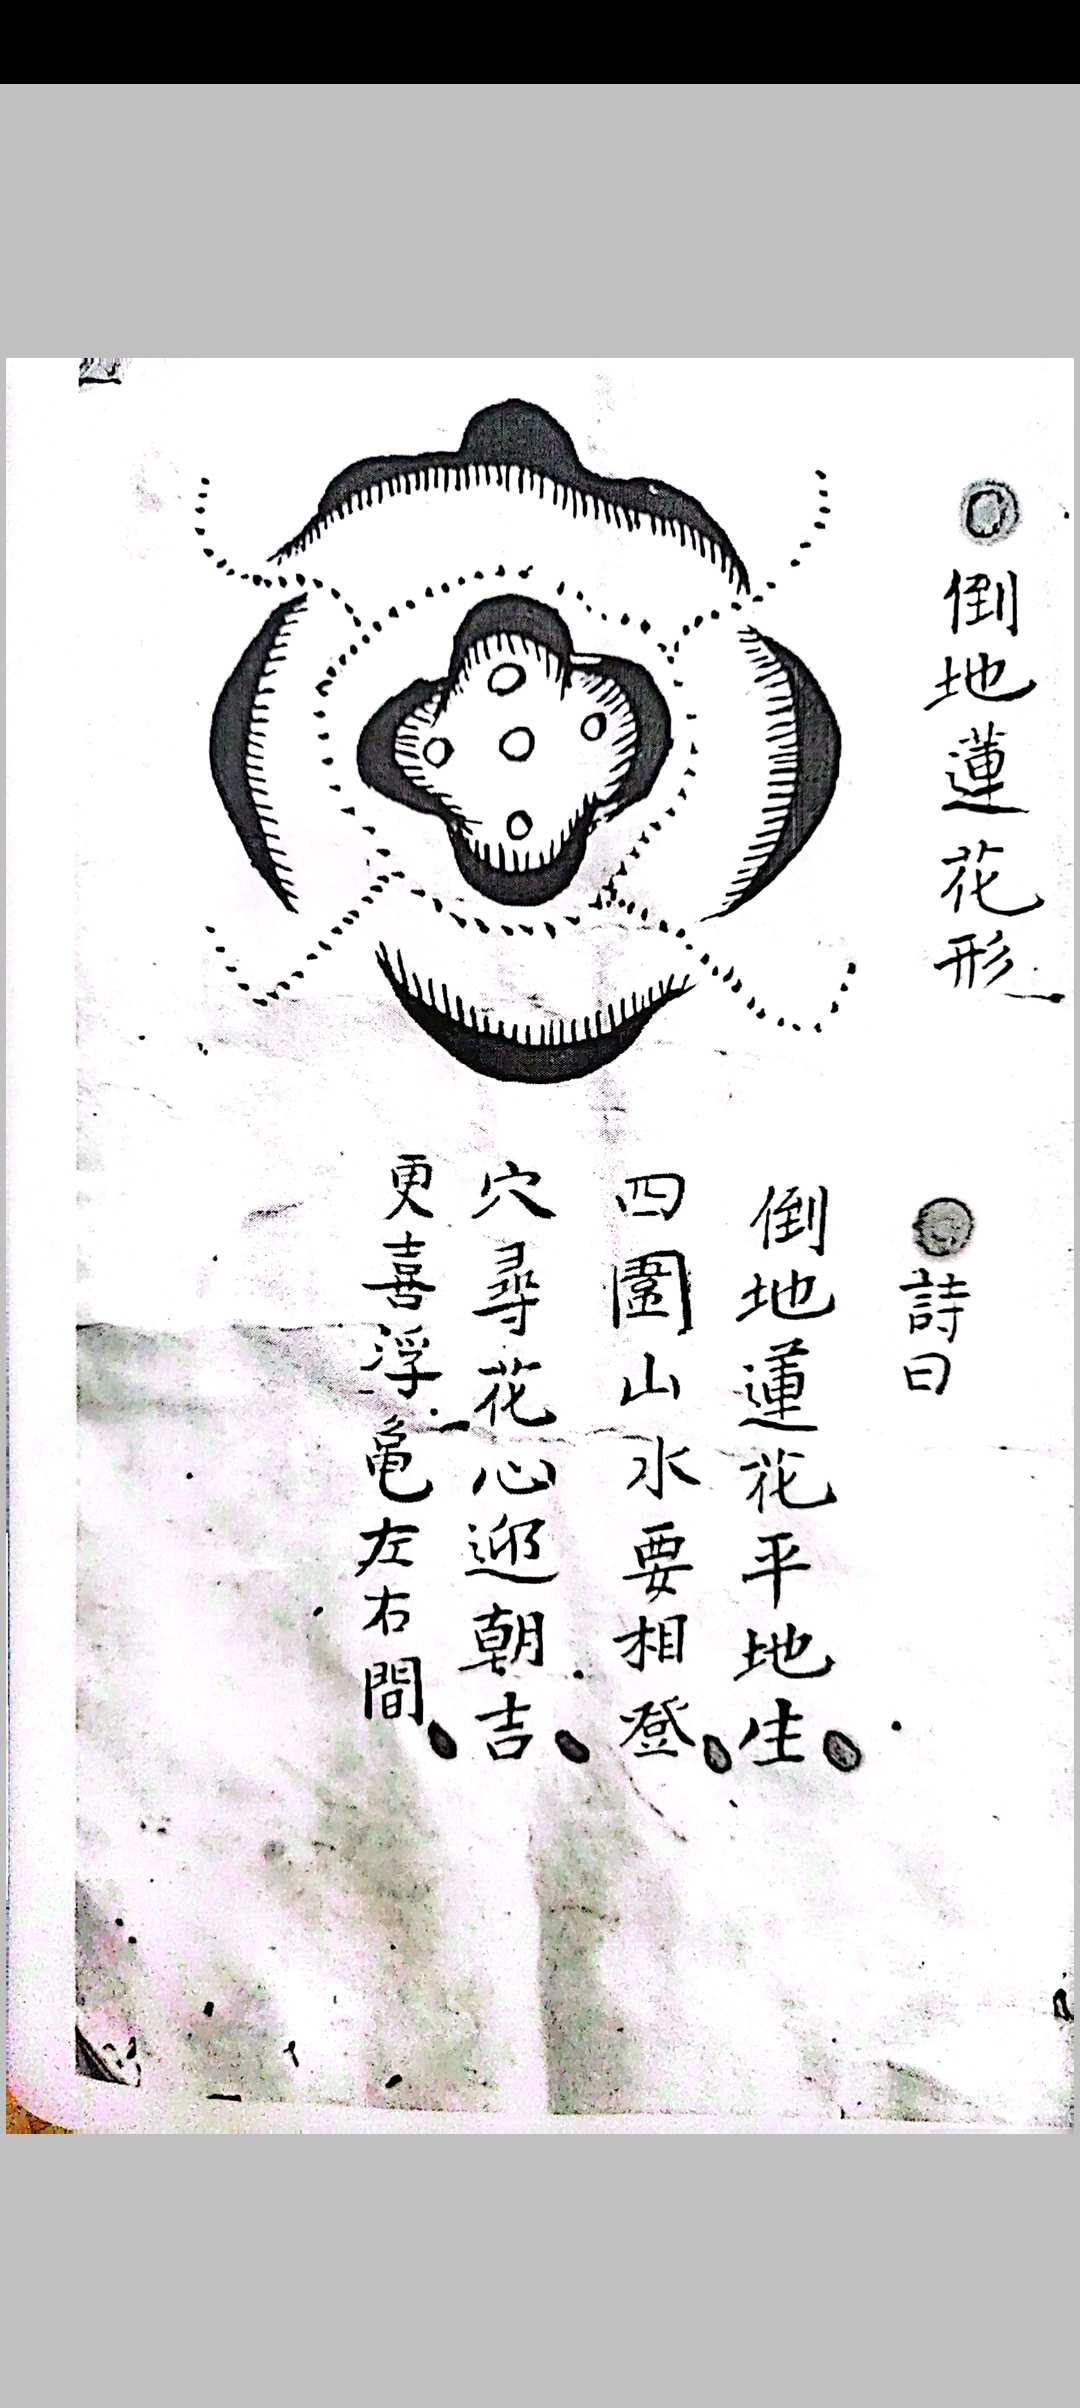 倒地蓮花形
詩曰
倒地蓮花平地生
四圍山水要相登
穴尋花心迎朝吉
更喜浮龟左右間